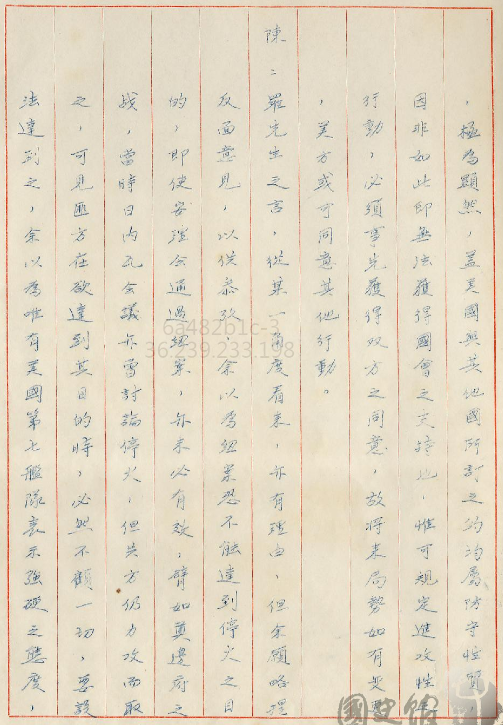 ，極為顯然，蓋美國與其他國所訂之約均屬防守性質，
因非如此即無法獲得國會之支持也，惟可規定進攻性
行動，必須事先獲得双方之同意，故將來局勢如有
，美方或可同意其他行動。
陳：羅先生之言，從某一角度看来，亦有理由，但余願略提
反面意見，以供參攷，余以為紐案恐不能達到停火之目
的，即使安理会通過紐案，亦未必有效，譬如奠邊府之
战，當時日內瓦会議亦嘗討論停火，但共方仍力攻而取
之，可見匪方在欲達到其目的時，必然不顧一切，要設
法達到之，余以為唯有美國第七艦隊表示強硬之態度，
6a482b1c-3
36.239.233.198
國史館